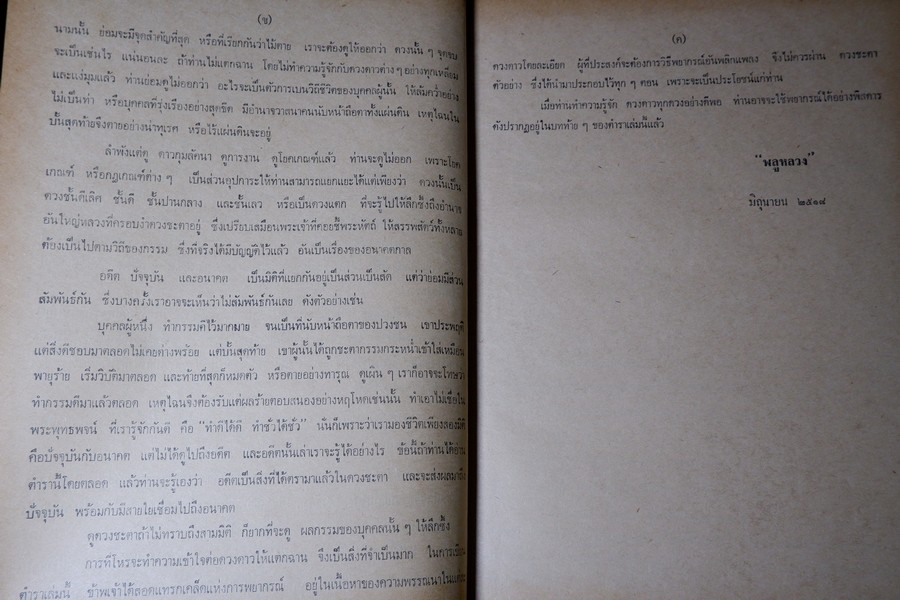 (ข)
นามนั้น ย่อมจะมีจุดสำคัญที่สุด หรือที่เรียกกันว่าไม้ตาย เราจะต้องดูให้ออกว่า ดวงนั้น ๆ จุดจบ
จะเป็นเช่นไร แน่นอนละ ถ้าท่านไม่แตกฉาน โดยไม่ทำความรู้จักกับดวงดาวต่าง ๆ อย่างทุกเหลี่ยม
และแง่มุมแล้ว ท่านย่อมดูไม่ออกว่า อะไรจะเป็นตัวการเบนวิถีชีวิตของบุคคลผู้นั้น ให้ล้มคว่ำอย่าง
ไม่เป็นท่า หรือบุคคลที่รุ่งเรืองอย่างสุดขีด มีอำนาจวาสนาคนนับหน้าถือตาทั้งแผ่นดิน เหตุไฉนใน
บั้นสุดท้ายจึงตายอย่างน่าทุเรศ หรือไร้แผ่นดินจะอยู่
ลำพังแต่ดู ดาวกุมลัคนา ดูการงาน ดูโยคเกณฑ์แล้ว ท่านจะดูไม่ออก เพราะโยค
เกณฑ์ หรือกฎเกณฑ์ต่าง ๆ เป็นส่วนอุปการะให้ท่านสามารถแยกแยะได้แต่เพียงว่า ดวงนั้นเป็น
ดวงชั้นดีเลิศ ชั้นดี ชั้นปานกลาง และชั้นเลว หรือเป็นดวงแตก ที่จะรู้ไปให้ลึกซึ้งถึงอำนาจ
อันใหญ่หลวงที่ครอบงำดวงชะตาอยู่ ซึ่งเปรียบเสมือนพระเจ้าที่คอยชี้พระหัตถ์ ให้สรรพสัตว์ทั้งหลาย
ต้องเป็นไปตามวิถีของกรรม ซึ่งที่จริงได้มีบัญญัติไว้แล้ว อันเป็นเรื่องของอนาคตกาล
อดีต ปัจจุบัน และอนาคต เป็นมิติที่แยกกันอยู่เป็นส่วนเป็นสัด แต่ว่าย่อมมีส่วน
สัมพันธ์กัน ซึ่งบางครั้งเราอาจจะเห็นว่าไม่สัมพันธ์กันเลย ดังตัวอย่างเช่น
บุคคลผู้หนึ่ง ทำกรรมดีไว้มากมาย จนเป็นที่นับหน้าถือตาของปวงชน เขาประพฤติ
แต่สิ่งดีชอบมาตลอดไม่เคยด่างพร้อย แต่บั้นสุดท้าย เขาผู้นั้นได้ถูกชะตากรรมกระหน่ำเข้าใส่เหมือน
พายุร้าย เริ่มวิบัติมาตลอด และท้ายที่สุดก็หมดตัว หรือตายอย่างทารุณ ดูเผิน ๆ เราก็อาจจะโทษว่า
ทำกรรมดีมาแล้วตลอด เหตุไฉนจึงต้องรับแต่ผลร้ายตอบสนองอย่างหฤโหดเช่นนั้น ทำเอาไม่เชื่อใน
พระพุทธพจน์ ที่เรารู้จักกันดี คือ "ทำดีได้ดี ทำชั่วได้ชั่ว" นั่นก็เพราะว่าเรามองชีวิตเพียงสองมิติ
คือปัจจุบันกับอนาคต แต่ไม่ได้ดูไปถึงอดีต และอดีตนั้นเล่าเราจะรู้ได้อย่างไร ข้อนี้ถ้าท่านได้อ่าน
ตำรานี้โดยตลอด แล้วท่านจะรู้เองว่า อดีตเป็นสิ่งที่ได้ตรามาแล้วในดวงชะตา และจะส่งผลมาถึง
ปัจจุบัน พร้อมกับมีสายใยเชื่อมไปถึงอนาคต
ดูดวงชะตาถ้าไม่ทราบถึงสามมิติ ก็ยากที่จะดู ผลกรรมของบุคคลนั้น ๆ ให้ลึกซึ้ง
การที่โหรจะทำความเข้าใจต่อดวงดาวให้แตกฉาน จึงเป็นสิ่งที่จำเป็นมาก ในการเขียน
ตำราเล่มนี้ ข้าพเจ้าได้สอดแทรกเคล็ดแห่งการพยากรณ์ อยู่ในเนื้อหาของความพรรณนาในแต่ละ
(ค)
ดวงดาวโดยละเอียด ผู้ที่ประสงค์จะต้องการวิธีพยากรณ์อันพลิกแพลง จึงไม่ควรผ่าน ดวงชะตา
ตัวอย่าง ซึ่งได้นำมาประกอบไว้ทุก ๆ ตอน เพราะจะเป็นประโยชน์แก่ท่าน
เมื่อท่านทำความรู้จัก ดวงดาวทุกดวงอย่างดีพอ ท่านอาจจะใช้พยากรณ์ได้อย่างพิสดาร
ดังปรากฏอยู่ในบทท้าย ๆ ของตำราเล่มนี้แล้ว
"พลูหลวง"
มิถุนายน ๒๕๑๘